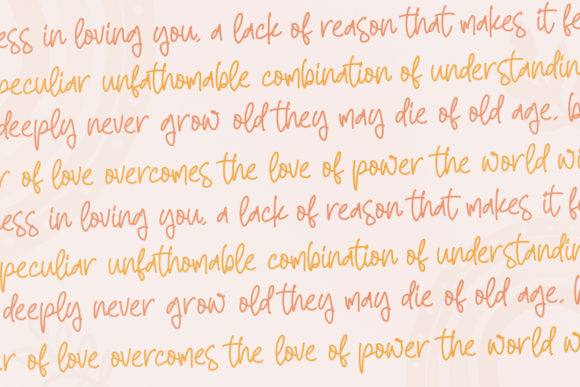 ess in loving you, a lack of reason that makes it fe
peculiar unfathomable combination of understandin
deeply never grow old they may die of old age, b
r of love overcomes the love of power the world wi
ess in loving you, a lack of reason that makes it fe
peculiar unfathomable combination of understandin
deeply never grow old they may die of old age, b
er of love overcomes the love of power the world w